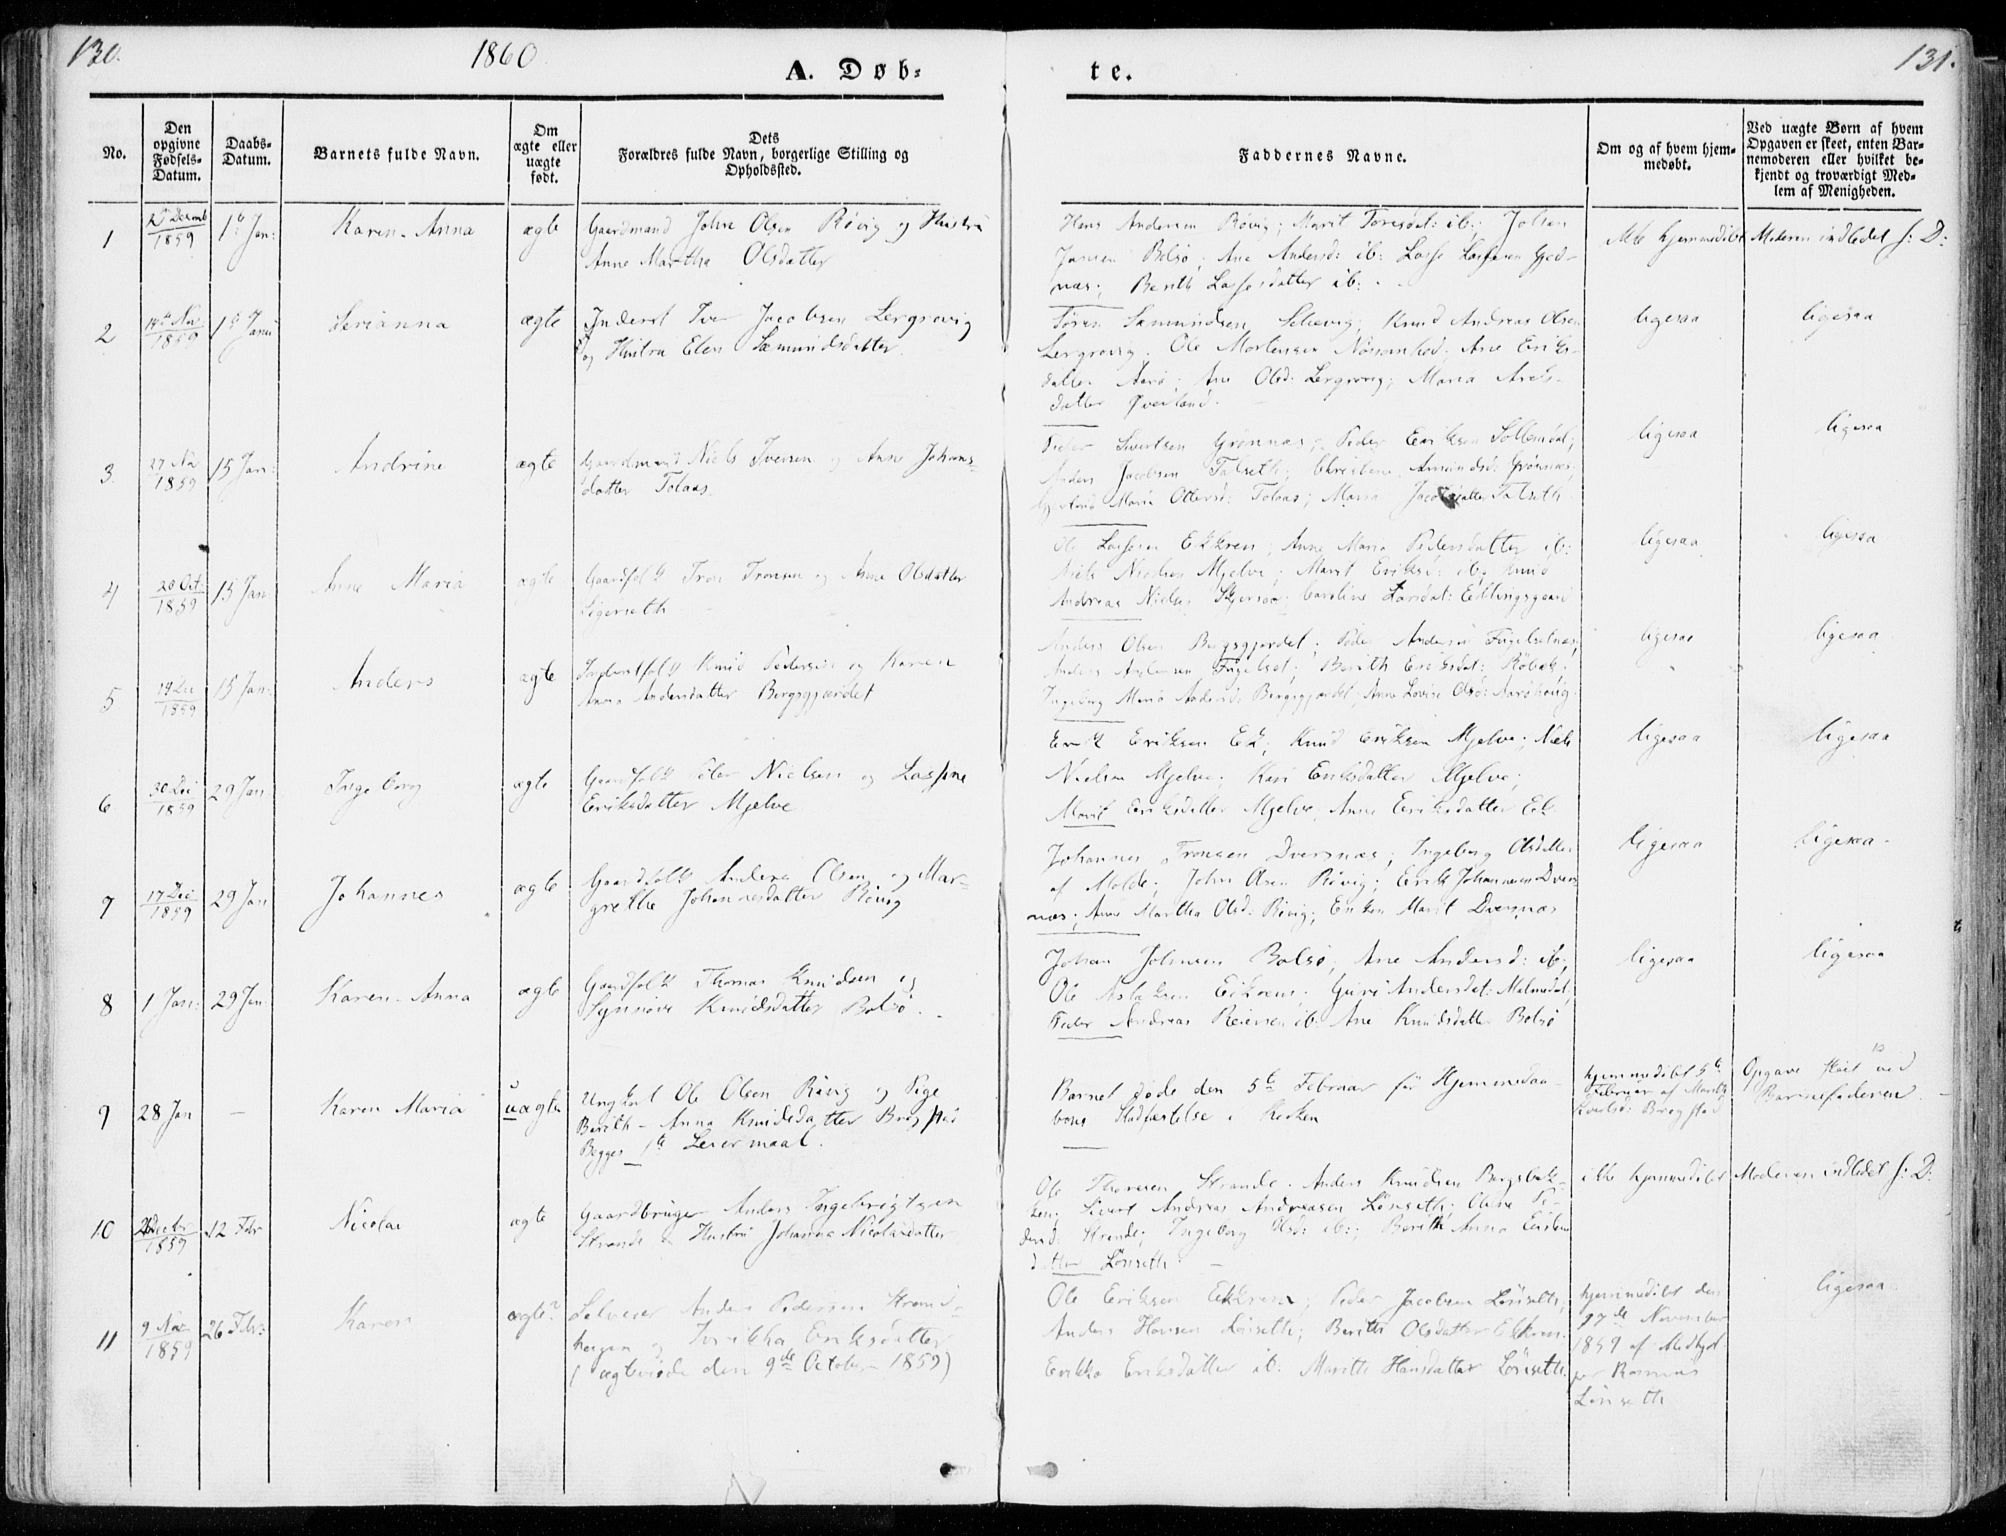 130.
1860
A. Døb-
te.
131.
No.
Den opgivne Fødsels-Datum.
Daabs-Datum.
Barnets fulde Navn.
Om ægte eller uægte født.
Dets
Forældres fulde Navn, borgerlige Stilling og
Opholdssted.
Faddernes Navne.
Om og af hvem hjem-
medøbt.
Ved uægte Børn af hvem
Opgaven er skeet, enten Bar-
nemoderen eller hvilket be-
kjendt og troværdigt Med-
lem af Menigheden.
1
1859
1 Jan:
Karen-Anna
ægte
Gaardmand John Olsen Røvig og Hustru
Anne Martha Olsdatter
Hans Andersen Røvig; Marit
Jansen Bolsø; Ane Andersd: ib: Lasse Lassesen
næs; Berith Lassesdatter ib:
ikke hjemmedøbt
Moderen indledet s: D:
2
1859
Serianna
ægte
Inderst Iver Jacobsen Lergrovig
og Hustru Elen Sæmundsdatter
Søren Sæmundsen Knud Andreas Olsen
Lergrovig. Ole Mortensen Ane Eriks-
datter Aarø; Ane Olsd: Lergrovig; Maria
datter Øverland.
ligesaa
ligesaa
3.
27 No
1859
15 Jan:
Andrine
ægte
Gaardmand Niels Iversen og Anne Johans-
datter Tolaas
Peder Sivertsen Grønnæs; Peder Eriksen
Anders Jacobsen Talseth; Christine Grønnæs;
Maria Ottersd: Tolaas; Maria Jacobsdatter Talseth
ligesaa
ligesaa
4
20 Oct
1859
15 Jan
Anne Maria
ægte
Gaardfolk Tron Tronsen og Anne Olsdatter
Ole Lassesen Ekkren; Anne Maria Pedersdatter ib:
Niels Nielsen Mjelve; Marit Eriksd: ib; Knud
Andreas Nielsen Caroline Larsdat:
ligesaa
ligesaa
5
19 Dec
1859
15 Jan:
Anders
ægte
Inderstfolk Knud Pedersen og Karen
Anna Andersdatter Bergsgjerdet
Anders Olsen Bergsgjerdet; Peder Andersen
Anders Andersen Fugelset; Berith Eriksdat: Røbek;
Ingeborg Maria Andersd: Bergsgjerdet; Anne Lovise Olsd:
ligesaa
ligesaa
6
30 Dec
1859
29 Jan
Ingeborg
ægte
Gaardfolk Peter Nielsen og Lassine
Eriksdatter Mjelve
Erik Eriksen Ek; Knud Eriksen Mjelve; Niels
Nielsen Mjelve; Kari Eriksdatter Mjelve;
Marit Eriksdatter Mjelve, Anne Eriksdatter Ek
ligesaa
ligesaa
7
17 Dec
1859
29 Jan
Johannes
ægte
Gaardfolk Anders Olsen og Mar-
grethe Johannesdatter Røvig
Johannes Tronsen Dversnæs; Ingeborg Olsdatter
af Molde; John Olsen Røvig; Erik Johannesen Dvers
næs; Anne Martha Olsd: Røvig; Enken Marit Dversnæs
ligesaa
ligesaa
8
1 Jan:
29 Jan:
Karen-Anna
ægte
Gaardfolk Thomas Knudsen og
Synnøve Knudsdatter Bolsø.
Johan Johnsen Bolsø; Ane Andersd: ib;
Ole Aslaksen Eikrem; Guri Andersdat: Malmedal;
Peder Andreas Reiersen ib: Ane Knudsdatter Bolsø
ligesaa
ligesaa
9
28 Jan
-
Karen Maria
uægte
Ungkarl Ole Olsen Røvig og Pige
Berith-Anna Knudsdatter Bregstad
Begges 1te Leiermaal.
Barnet døde den 5te Februar før Hjemmedaa-
bens Stadfæstelse i Kirken
hjemmedøbt 5te
Februar af Marith
Sivertsd: Bregstad
Opgave skeet ved
Barnefaderen.
10
1859
12 Febr
Nicolai
ægte
Gaardbruger Anders Ingebrigtsen
Strande og Hustru Johanna Nicolaisdatter
Ole Thoresen Strande. Anders Knudsen
Sivert Andreas Andreasen Lønseth; Oline Pe-
dersd: Strande; Ingeborg Olsd: ib:; Berith Anna
datter Lønseth
ikke hjemmedøbt
Moderen indledet s: D:
11
9 Nov
1859
26 Febr:
Karen
ægte
Selveier Anders Pedersen Strand-
Eriksdatter
(ægteviede den 9de October 1859)
Ole Eriksen Ekkrem; Peder Jacobsen Lønseth;
Anders Hansen Lønseth; Berith Olsdatter Ekkrem.
Erikka Eriksdatter ib: Marith Hansdatter Lønseth.
hjemmedøbt den
17de November
1859 af Medhjel-
per Rasmus
Lønseth
ligesaa